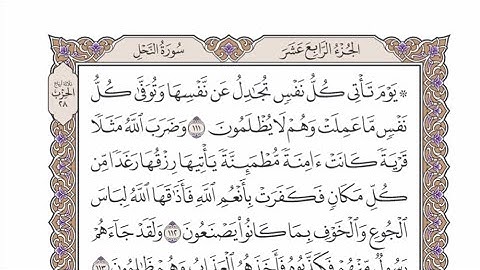 الجزء الرابع عشر
سورة النحل
ثلاثة أرباع
الحزب
٢٨
۞ يَوْمَ تَأْتِي كُلُّ نَفْسٍ تُجَٰدِلُ عَن نَّفْسِهَا وَتُوَفَّىٰ كُلُّ
نَفْسٍ مَّا عَمِلَتْ وَهُمْ لَا يُظْلَمُونَ ١١١ وَضَرَبَ ٱللَّهُ مَثَلًا
قَرْيَةً كَانَتْ ءَامِنَةً مُّطْمَئِنَّةً يَأْتِيهَا رِزْقُهَا رَغَدًا مِّن
كُلِّ مَكَانٍ فَكَفَرَتْ بِأَنْعُمِ ٱللَّهِ فَأَذَٰقَهَا ٱللَّهُ لِبَاسَ
ٱلْجُوعِ وَٱلْخَوْفِ بِمَا كَانُوا۟ يَصْنَعُونَ ١١٢ وَلَقَدْ جَآءَهُمْ
رَسُولٌ مِّنْهُمْ فَكَذَّبُوهُ فَأَخَذَهُمُ ٱلْعَذَابُ وَهُمْ ظَٰلِمُونَ ١١٣